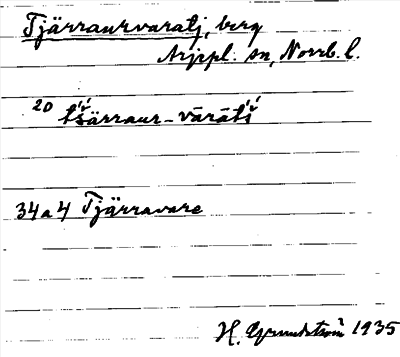 Tjärraurvaratj, berg
Arjepl. sn, Norrb. l.
20 tšärraur-vārātš
34a4 Tjärravare
H. Grundström 1935